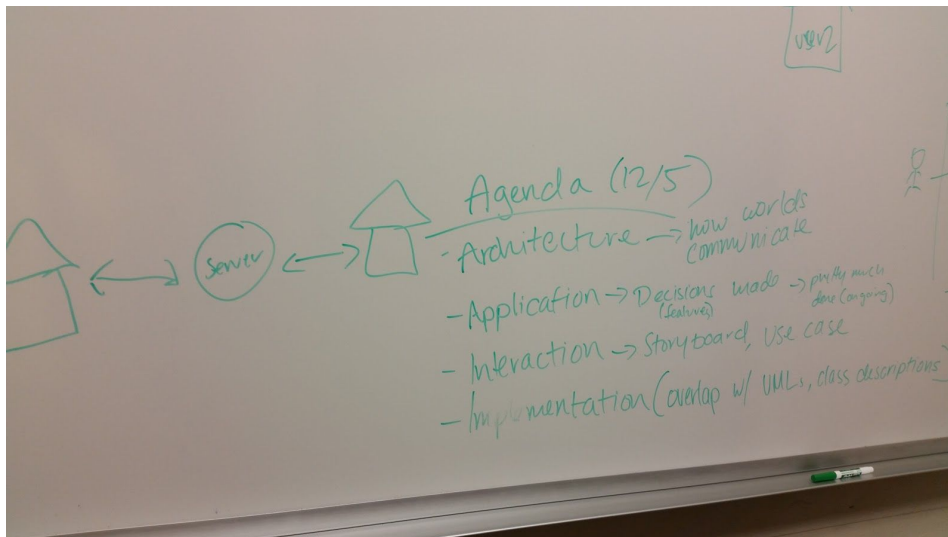 user2
Agenda (12/5)
server
- Architecture → how worlds
communicate
- Application → Decisions made → pretty much
(features) done (ongoing)
- Interaction → Storyboard, use case
- Implementation (overlap w/ UMLs, class descriptions)